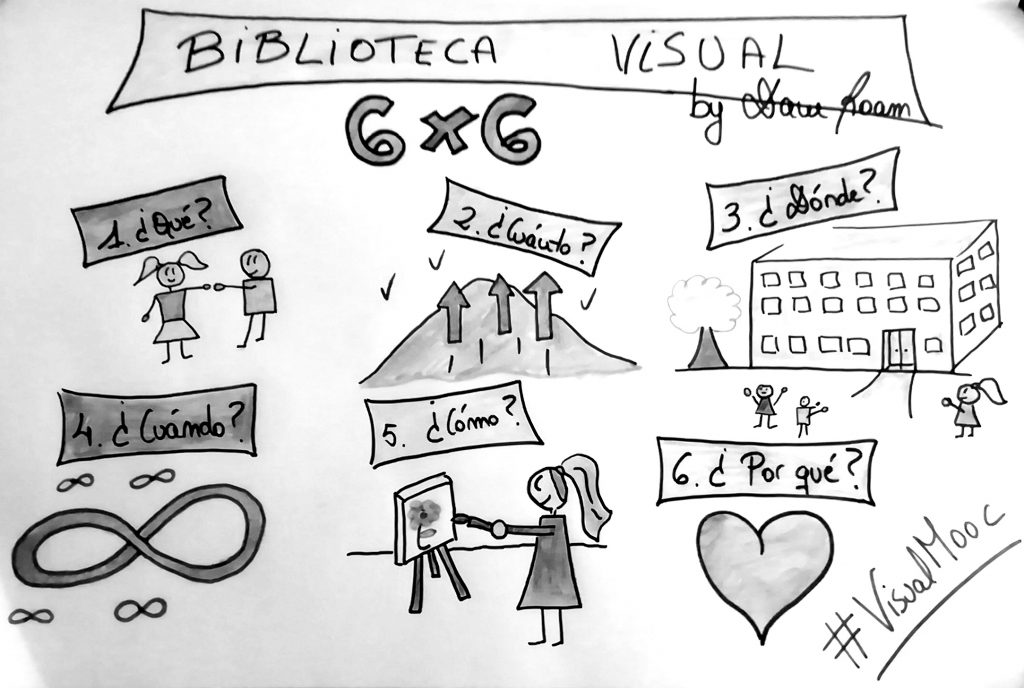 BiBLiOTECA ViSUAL
by Dave Roam
6x6
1. ¿Qué?
2. ¿Cuánto?
3. ¿Dónde?
4. ¿Cuándo?
5. ¿Cómo?
6. ¿Por qué?
#VisualMooc